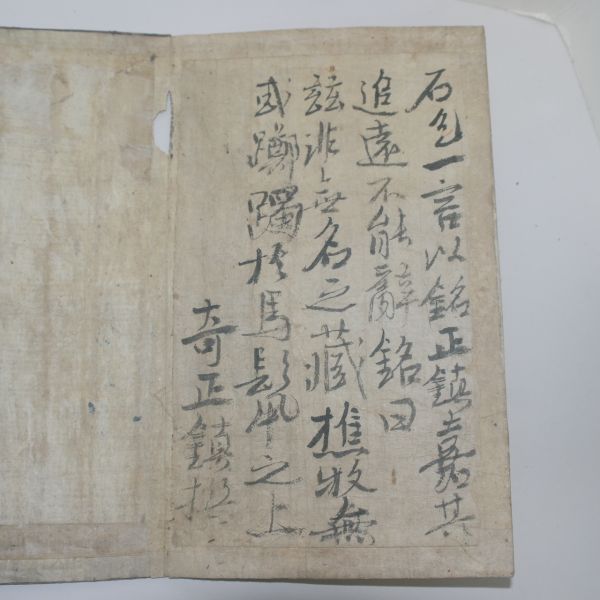 石乞一言以銘正鎭嘉其
追遠不能辭銘曰
玆非無名之藏樵牧無
或躑躅於馬鬣之上
奇正鎭撰